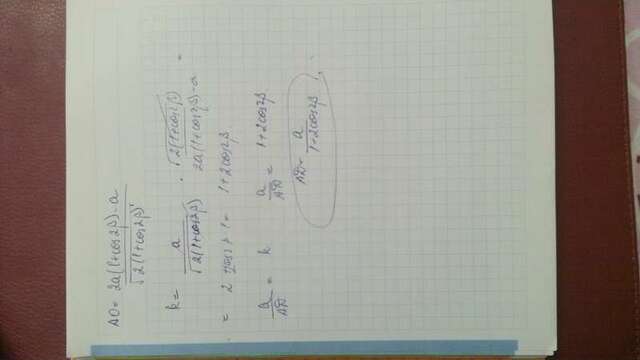 AO = 2a(1+cos2β)-a / √2(1+cos2β)
k = a / √2(1+cos2β) · √2(1+cos2β) / 2a(1+cos2β)-a =
= 1+2cos2β
a/AD = k a/AD = 1+2cos2β
AD = a / 1+2cos2β